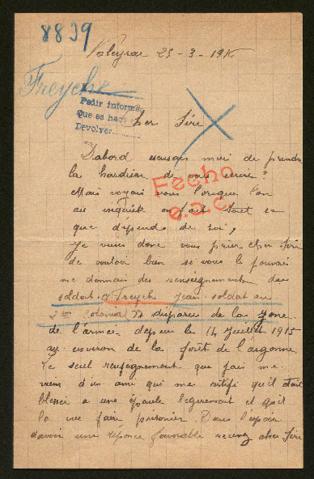 8839
Valeyrac 25-3-191
Freyche
Pedir informe
Que se haga
Devolver
Cher Sire
D'abord excuses moi de prendre
la hardiesse de vous écrire?
Mais voyais vous lorsque l'on
ait inquiète on fait tout ce
que dépends de soi,
Fecho
Je viens donc vous prier cher Sire
de vouloir bien si vous le pouvais
me donnais des renseignements du
soldat Freyche Jean soldat au
colonial disparue de la zone
de l'armée depuis le 14 Juillet 1915
au environ de la forêt de l'argonne
Le seul renseignement que j'ai me
vien d'un ami qui me certifie qu'il était
blessé a une épaule légèrement et qu'il
la vue fair prisonier. Dans l'espoir
d'avoir une réponse favorable recevez cher Sire